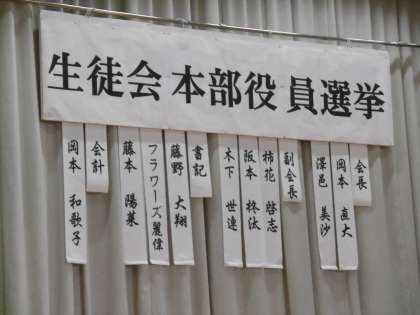 生徒会本部役員選挙
会長
岡本 直大
深邑 美沙
副会長
柿花 啓志
阪本 柊汰
木下 世連
書記
藤野 大翔
フラワーズ麗偉
藤本 陽菜
会計
岡本 和歌子